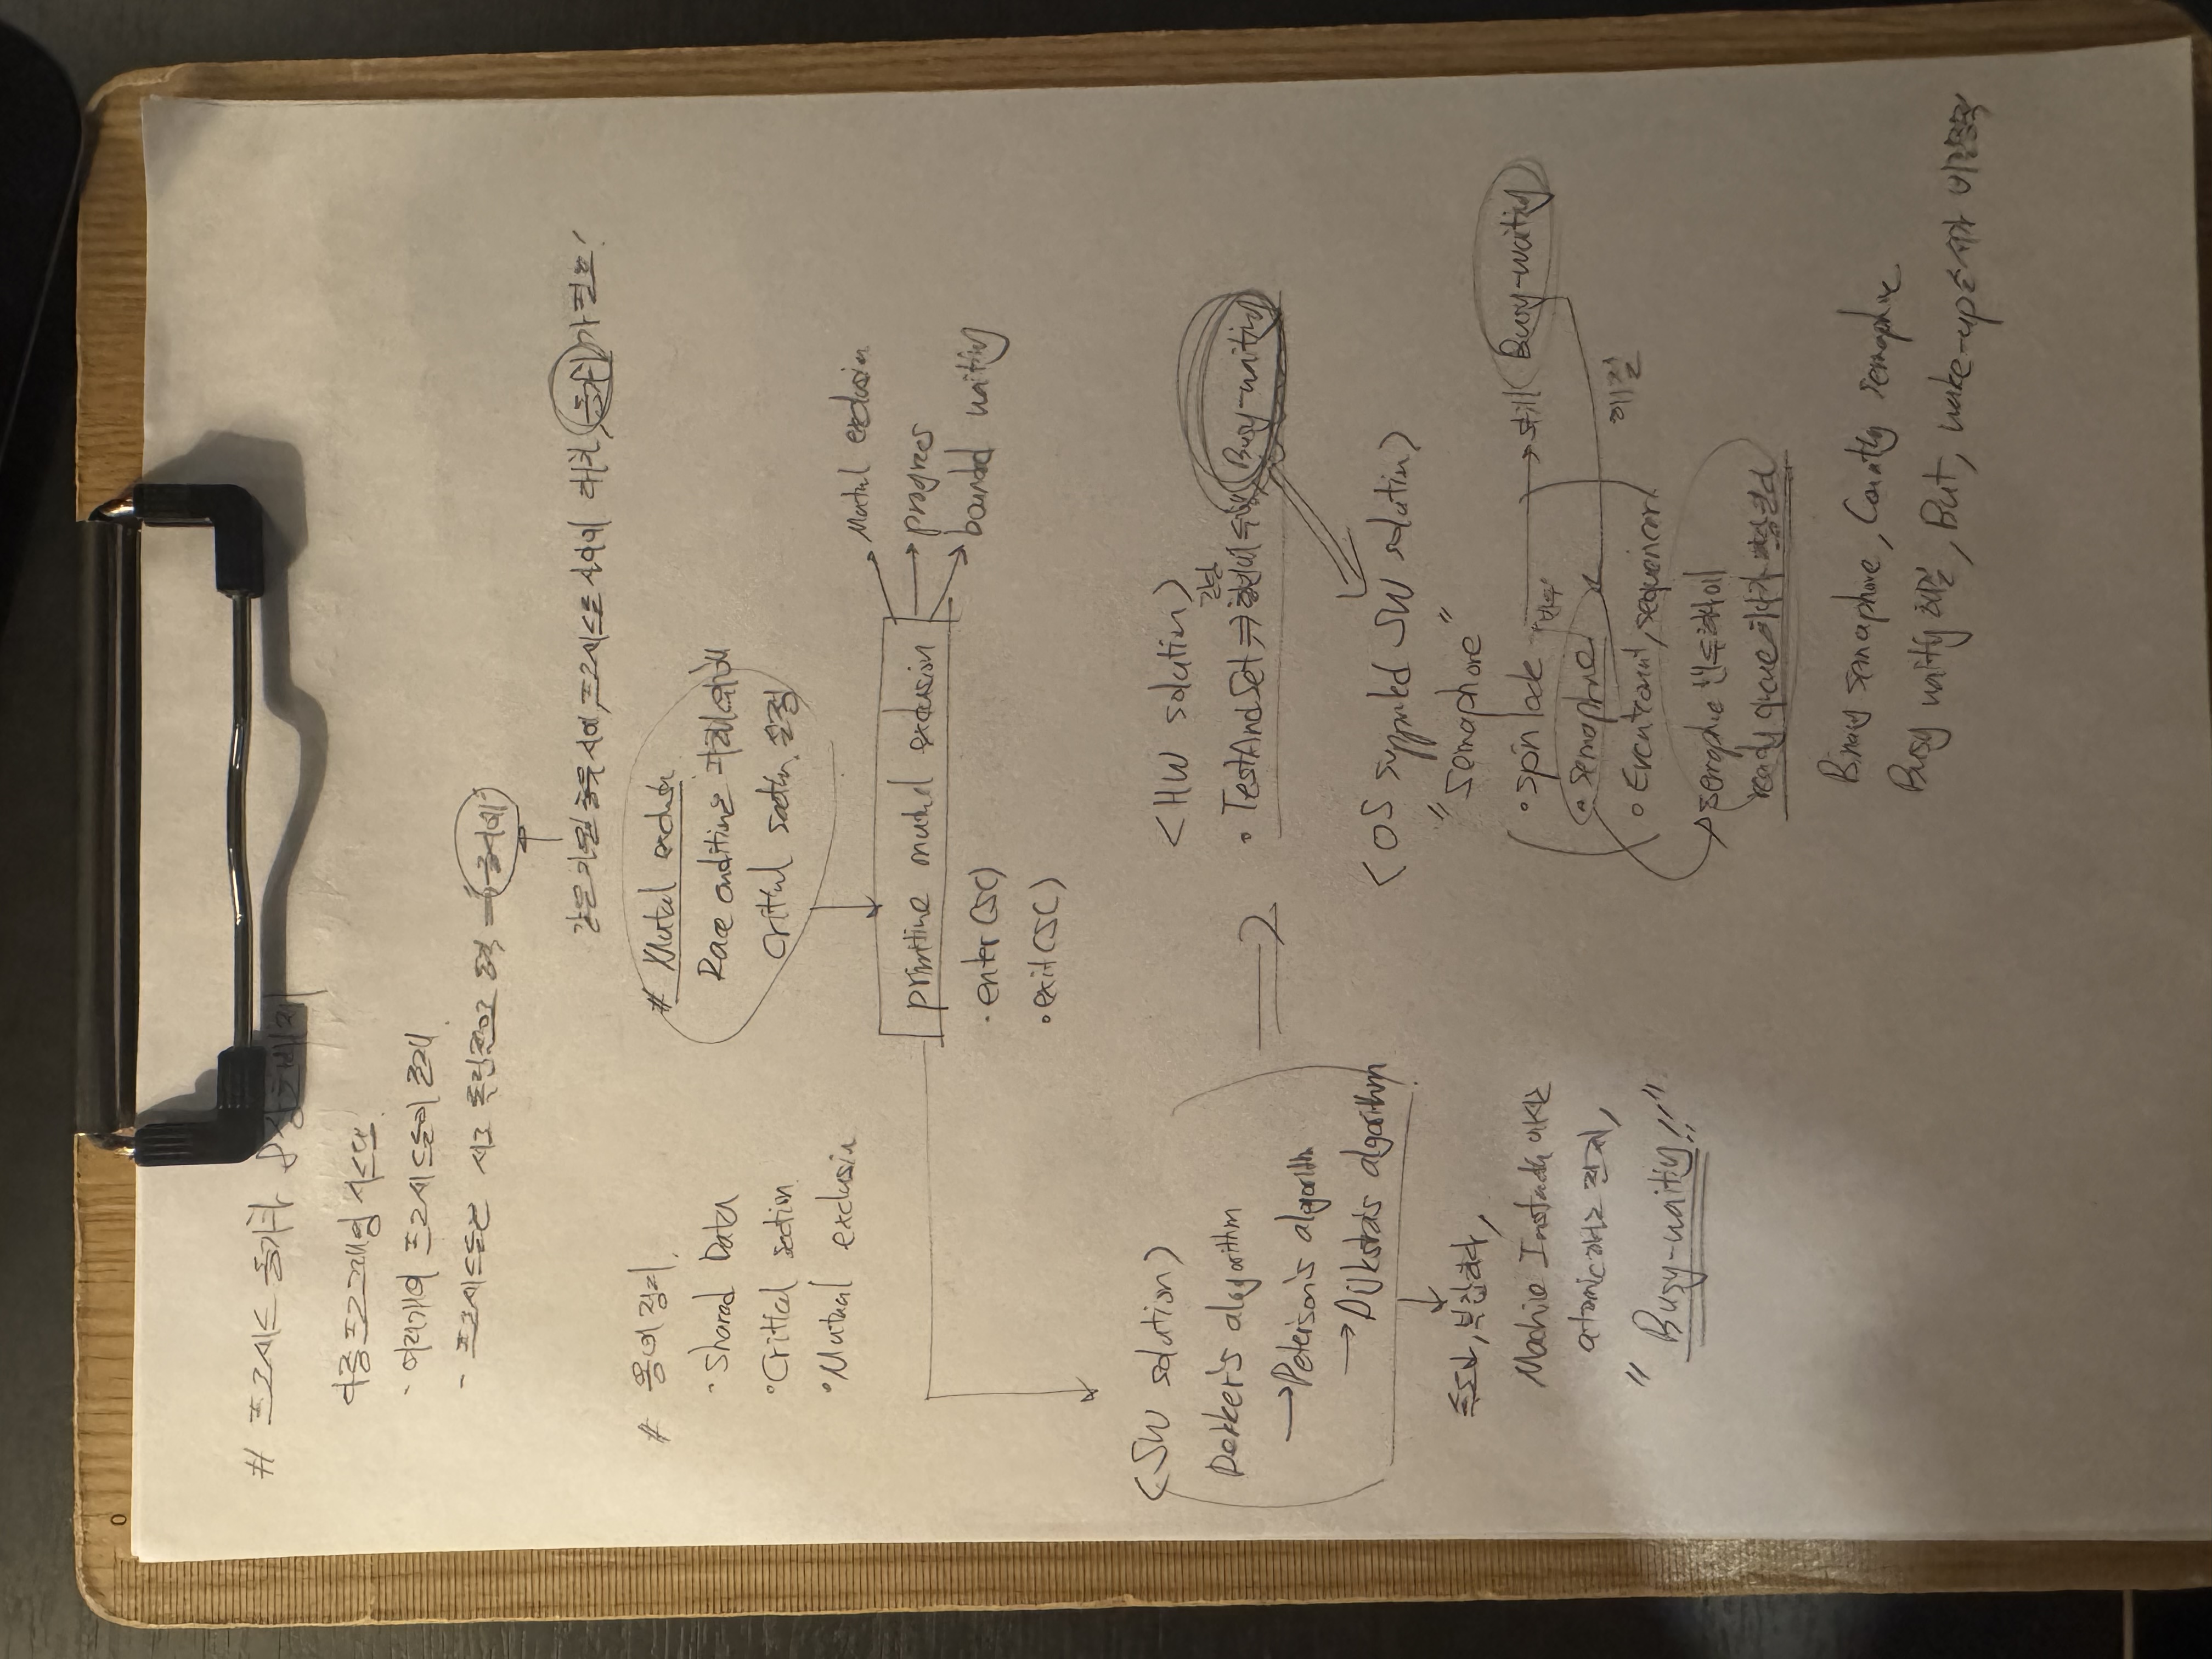 0
# 프로세스 동기화 & 상호배제
다중프로그래밍 시스템
- 여러개의 프로세스들이 존재
- 프로세스들은 서로 독립적으로 동작 ⇒ "동시에"
같은 자원 공유시에, 프로세스들 사이에 대화, 동기화가 필요!
# 용어정리.
· Shared Data
· Critical section
· Mutual exclusion
# Mutual exclusion
Race condition을 피하기 위해
Critical section 설정
primitive mutual exclusion
· enter(SC)
· exit(SC)
Mutual exclusion
progress
bounded waiting
<SW solution>
Dekker's algorithm
→ Peterson's algorithm
→ Dijkstra's algorithm
속도↓, 복잡하다,
Machine Instruction
atomic
"Busy-waiting!!"
<HW solution>
· TestAndSet ⇒ 한번에 수행, Busy-waiting
<OS supported SW solution>
"Semaphore"
· spin lock → still Busy-waiting
· semaphore
해결
· Eventcount, sequencer
→ semaphore 변수 하나에
ready queue 하나가 할당된다
Binary semaphore, Counting semaphore
Busy waiting 해결, But, wake-up 순서가 비결정적